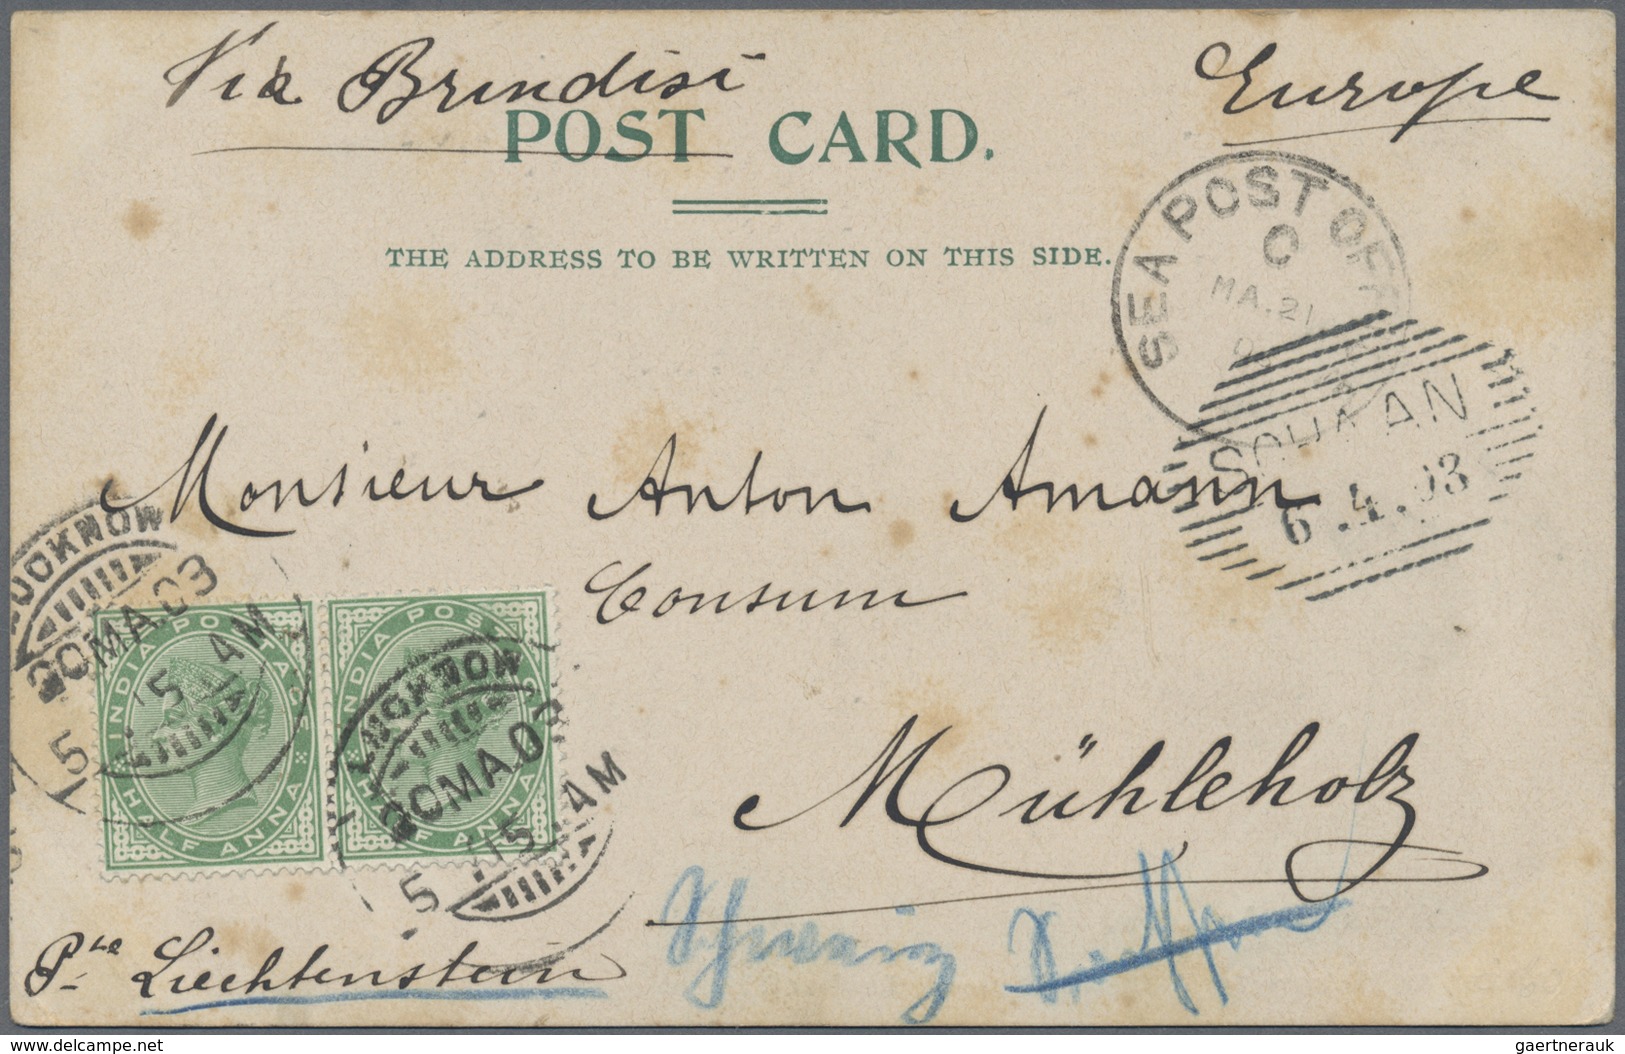 Via Brindisi
Europe
POST CARD.
THE ADDRESS TO BE WRITTEN ON THIS SIDE.
SEA POST OFF
C
MA.21
SCHAAN
6.4.03
Monsieur Anton Amann
Consum
Mühleholz
LUCKNOW
20MA.03
5 15 AM
INDIA POSTAGE
HALF ANNA
INDIA POSTAGE
HALF ANNA
LUCKNOW
20MA.03
5 15 AM
Pte Liechtenstein
delcampe.net
gaertnerauk